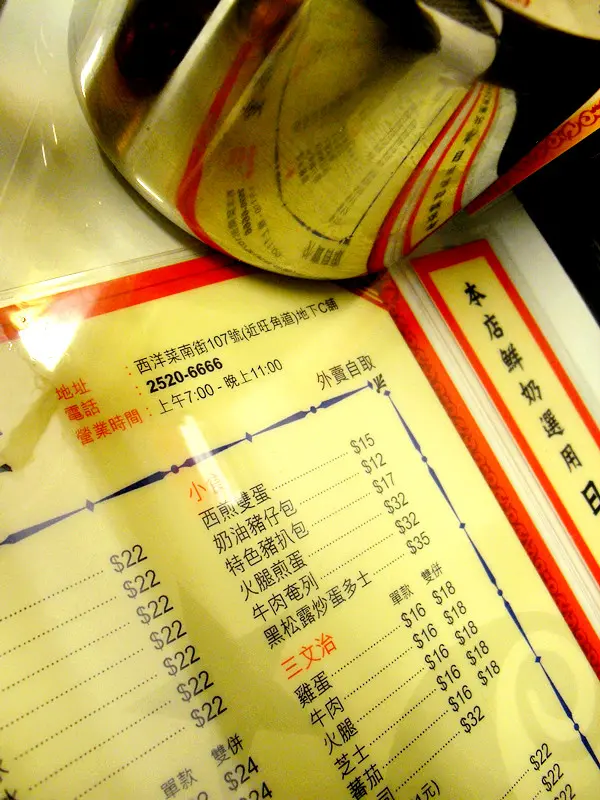 地址 : 西洋菜南街107號(近旺角道)地下C舖
電話 : 2520-6666
營業時間 : 上午7:00 - 晚上11:00
外賣自取
$22
$22
$22
$22
$22
$22
$22
單款 雙併
$22 $24
$24
小
西煎雙蛋 $15
奶油豬仔包 $12
特色豬扒包 $17
火腿煎蛋 $32
牛肉奄列 $32
黑松露炒蛋多士 $35
三文治 單款 雙併
雞蛋 $16 $18
牛肉 $16 $18
火腿 $16 $18
芝士 $16 $18
蕃茄 $16 $18
$32
$22
$22
本店鮮奶選用